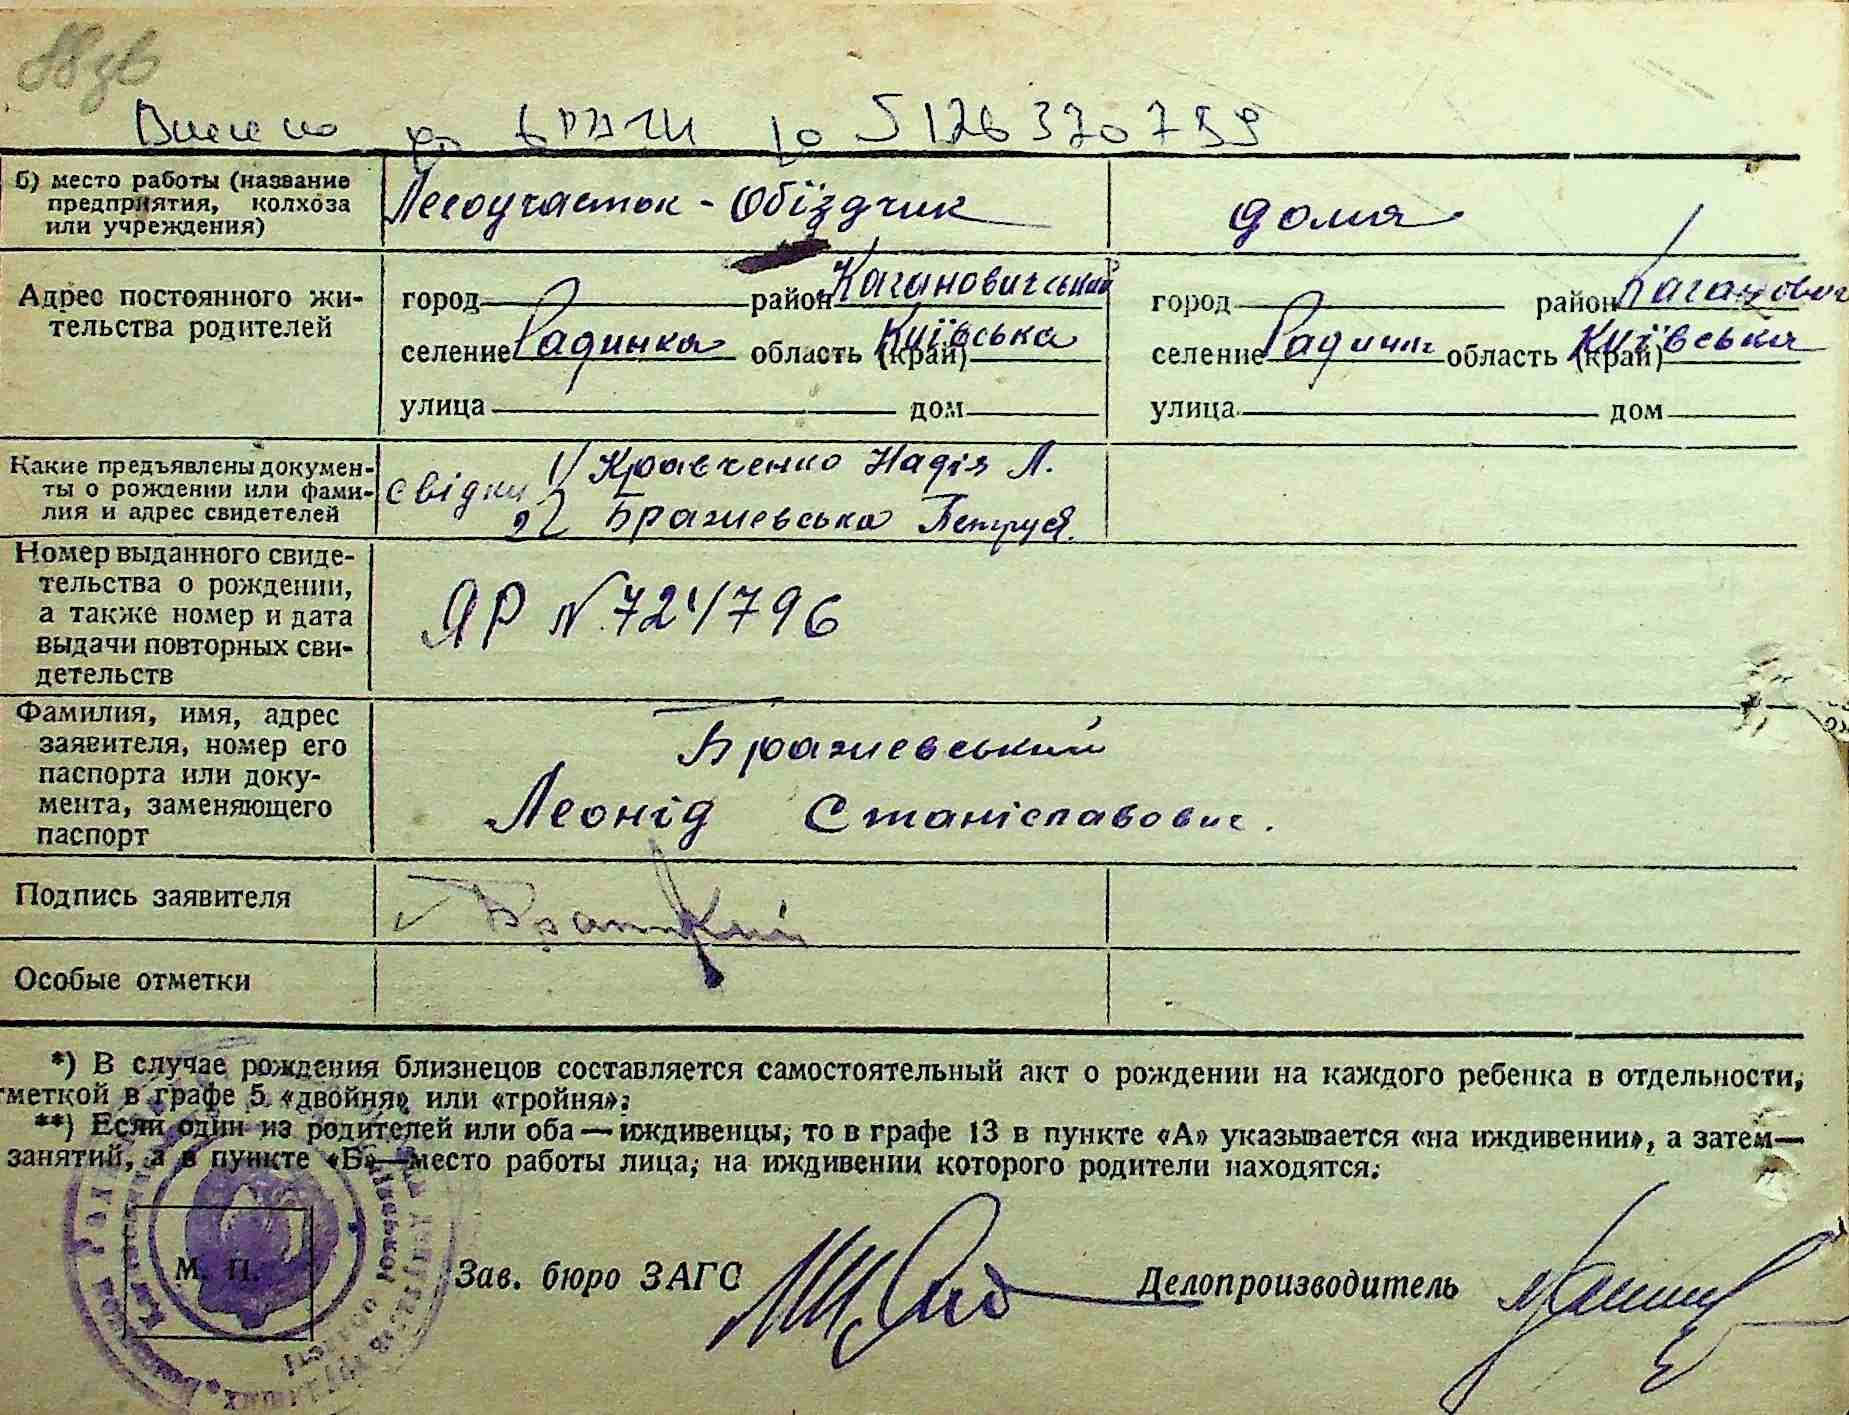 88 зв
Внесено до ДРАЦС 5126370799
б) место работы (название предприятия, колхоза или учреждения)
Лесоучасток - Обїздчик
дома
Адрес постоянного жительства родителей
город район Кагановичський
селение Радинка область (край) Київська
улица дом
город район Каганович
селение Радинка область (край) Київська
улица дом
Какие предъявлены документы о рождении или фамилия и адрес свидетелей
свідки 1/ Кравченко Надія Л.
2/ Бражевська Петруся.
Номер выданного свидетельства о рождении, а также номер и дата выдачи повторных свидетельств
ЯР N 724796
Фамилия, имя, адрес заявителя, номер его паспорта или документа, заменяющего паспорт
Бражевський
Леонід Станіславович.
Подпись заявителя
Особые отметки
*) В случае рождения близнецов составляется самостоятельный акт о рождении на каждого ребенка в отдельности,
меткой в графе 5 «двойня» или «тройня».
**) Если один из родителей или оба — иждивенцы, то в графе 13 в пункте «А» указывается «на иждивении», а затем—
занятий, а в пункте «Б»—место работы лица, на иждивении которого родители находятся.
М. П.
Зав. бюро ЗАГС
Делопроизводитель